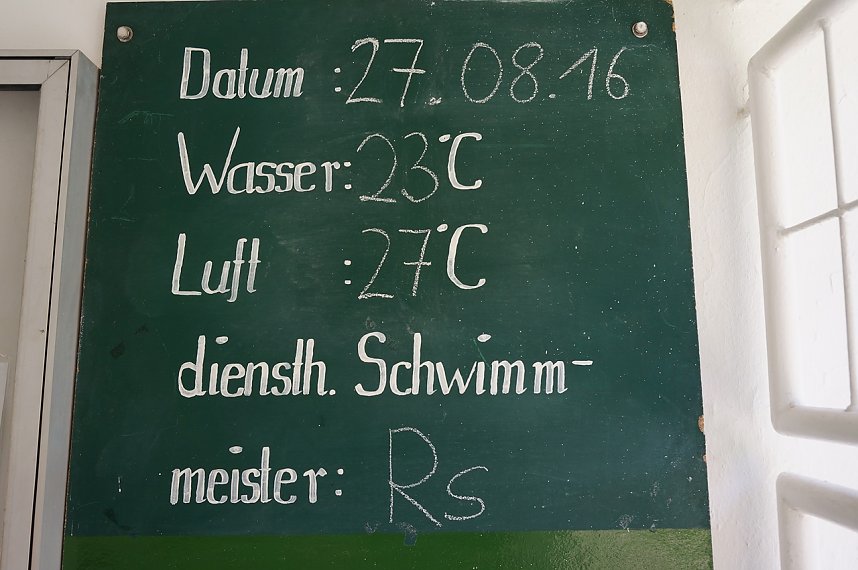 Datum : 27.08.16
Wasser: 23°C
Luft : 27°C
diensth. Schwimm-
meister: Rs